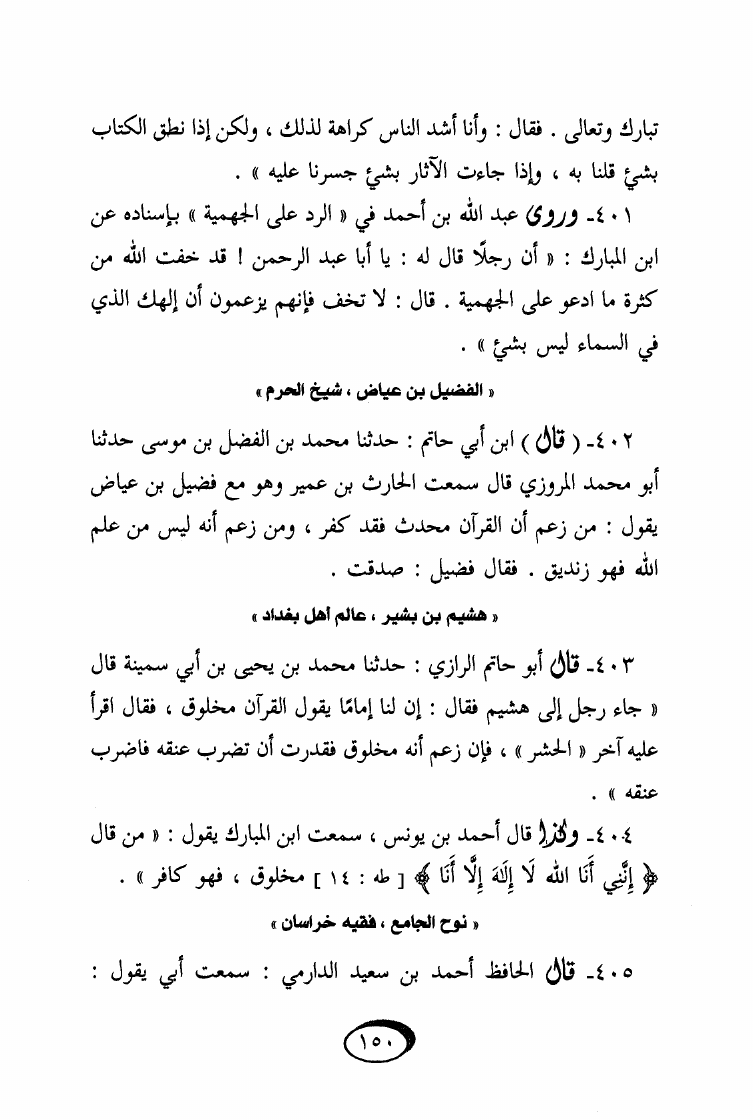 تبارك وتعالى . فقال : وأنا أشد الناس كراهة لذلك ، ولكن إذا نطق الكتاب
بشئ قلنا به ، وإذا جاءت الآثار بشئ جسرنا عليه » .
٤٠١ـ وروى عبد الله بن أحمد في « الرد على الجهمية » بإسناده عن
ابن المبارك : « أن رجلًا قال له : يا أبا عبد الرحمن ! قد خفت الله من
كثرة ما ادعو على الجهمية . قال : لا تخف فإنهم يزعمون أن إلهك الذي
في السماء ليس بشئ » .
« الفضيل بن عياض ، شيخ الحرم »
٤٠٢ـ ( قال ) ابن أبي حاتم : حدثنا محمد بن الفضل بن موسى حدثنا
أبو محمد المروزي قال سمعت الحارث بن عمير وهو مع فضيل بن عياض
يقول : من زعم أن القرآن محدث فقد كفر ، ومن زعم أنه ليس من علم
الله فهو زنديق . فقال فضيل : صدقت .
« هشيم بن بشير ، عالم أهل بغداد »
٤٠٣ـ قال أبو حاتم الرازي : حدثنا محمد بن يحيى بن أبي سمينة قال
« جاء رجل إلى هشيم فقال : إن لنا إمامًا يقول القرآن مخلوق ، فقال اقرأ
عليه آخر « الحشر » ، فإن زعم أنه مخلوق فقدرت أن تضرب عنقه فاضرب
عنقه » .
٤٠٤ـ وكذا قال أحمد بن يونس ، سمعت ابن المبارك يقول : « من قال
﴿ إِنَّنِي أَنَا الله لَا إِلَٰهَ إِلَّا أَنَا ﴾ [ طه : ١٤ ] مخلوق ، فهو كافر » .
« نوح الجامع ، فقيه خراسان »
٤٠٥ـ قال الحافظ أحمد بن سعيد الدارمي : سمعت أبي يقول :
١٥٠